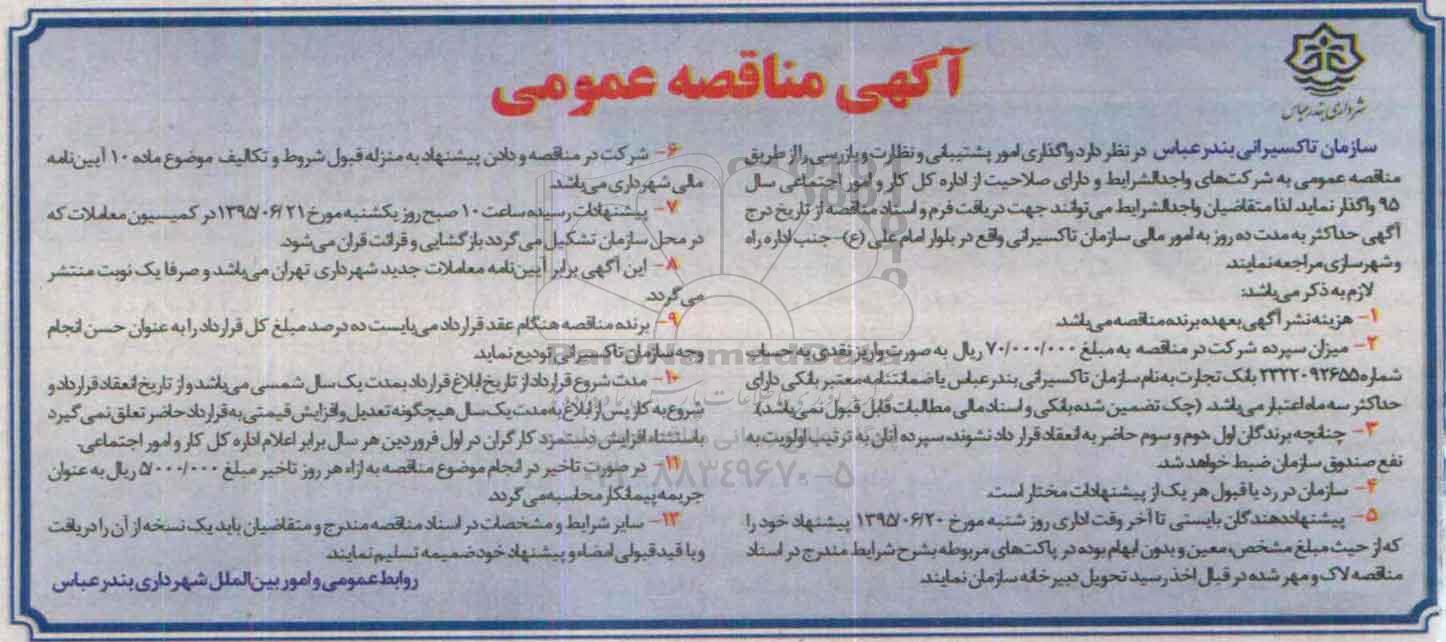 شهرداری بندرعباس
آگهی مناقصه عمومی
سازمان تاکسیرانی بندرعباس در نظر دارد واگذاری امور پشتیبانی و نظارت و بازرسی را از طریق
مناقصه عمومی به شرکت‌های واجدالشرایط و دارای صلاحیت از اداره کل کار و امور اجتماعی سال
۹۵ واگذار نماید. لذا متقاضیان واجدالشرایط می‌توانند جهت دریافت فرم و اسناد مناقصه از تاریخ درج
آگهی حداکثر به مدت ده روز به امور مالی سازمان تاکسیرانی واقع در بلوار امام علی (ع)- جنب اداره راه
و شهرسازی مراجعه نمایند.
لازم به ذکر می‌باشد:
۱- هزینه نشر آگهی بعهده برنده مناقصه می‌باشد.
۲- میزان سپرده شرکت در مناقصه به مبلغ ۷۰/۰۰۰/۰۰۰ ریال به صورت واریز نقدی به حساب
شماره ۲۳۲۲۰۹۲۶۵۵ بانک تجارت به نام سازمان تاکسیرانی بندرعباس یا ضمانتنامه معتبر بانکی دارای
حداکثر سه ماه اعتبار می‌باشد. (چک تضمین شده بانکی و اسناد مالی مطالبات قابل قبول نمی‌باشد).
۳- چنانچه برندگان اول، دوم و سوم حاضر به انعقاد قرار داد نشوند، سپرده آنان به ترتیب اولویت به
نفع صندوق سازمان ضبط خواهد شد.
۴- سازمان در رد یا قبول هر یک از پیشنهادات مختار است.
۵- پیشنهاددهندگان بایستی تا آخر وقت اداری روز شنبه مورخ ۱۳۹۵/۰۶/۲۰ پیشنهاد خود را
که از حیث مبلغ مشخص، معین و بدون ابهام بوده در پاکت‌های مربوطه بشرح شرایط مندرج در اسناد
مناقصه لاک و مهر شده در قبال اخذ رسید تحویل دبیرخانه سازمان نمایند.
۶- شرکت در مناقصه و دادن پیشنهاد به منزله قبول شروط و تکالیف موضوع ماده ۱۰ آیین‌نامه
مالی شهرداری می‌باشد.
۷- پیشنهادات رسیده ساعت ۱۰ صبح روز یکشنبه مورخ ۱۳۹۵/۰۶/۲۱ در کمیسیون معاملات که
در محل سازمان تشکیل می‌گردد بازگشایی و قرائت قران می‌شود.
۸- این آگهی برابر آیین‌نامه معاملات جدید شهرداری تهران می‌باشد و صرفا یک نوبت منتشر
می‌گردد.
۹- برنده مناقصه هنگام عقد قرارداد می‌بایست ده درصد مبلغ کل قرارداد را به عنوان حسن انجام
وجه سازمان تاکسیرانی تودیع نماید.
۱۰- مدت شروع قرارداد از تاریخ ابلاغ قرارداد بمدت یک سال شمسی می‌باشد و از تاریخ انعقاد قرارداد و
شروع به کار پس از ابلاغ به مدت یک سال هیچگونه تعدیل و افزایش قیمتی به قرارداد حاضر تعلق نمی گیرد
باستثناء افزایش دستمزد کارگران در اول فروردین هر سال برابر اعلام اداره کل کار و امور اجتماعی.
۱۱- در صورت تاخیر در انجام موضوع مناقصه به ازاء هر روز تاخیر مبلغ ۵/۰۰۰/۰۰۰ ریال به عنوان
جریمه پیمانکار محاسبه می گردد.
۱۲- سایر شرایط و مشخصات در اسناد مناقصه مندرج و متقاضیان باید یک نسخه از آن را دریافت
و با قید قبولی امضاء و پیشنهاد خود ضمیمه تسلیم نمایند.
روابط عمومی و امور بین‌الملل شهرداری بندرعباس
ParsNamadData
۰۲۱-۸۸۳۴۹۶۷۰-۵